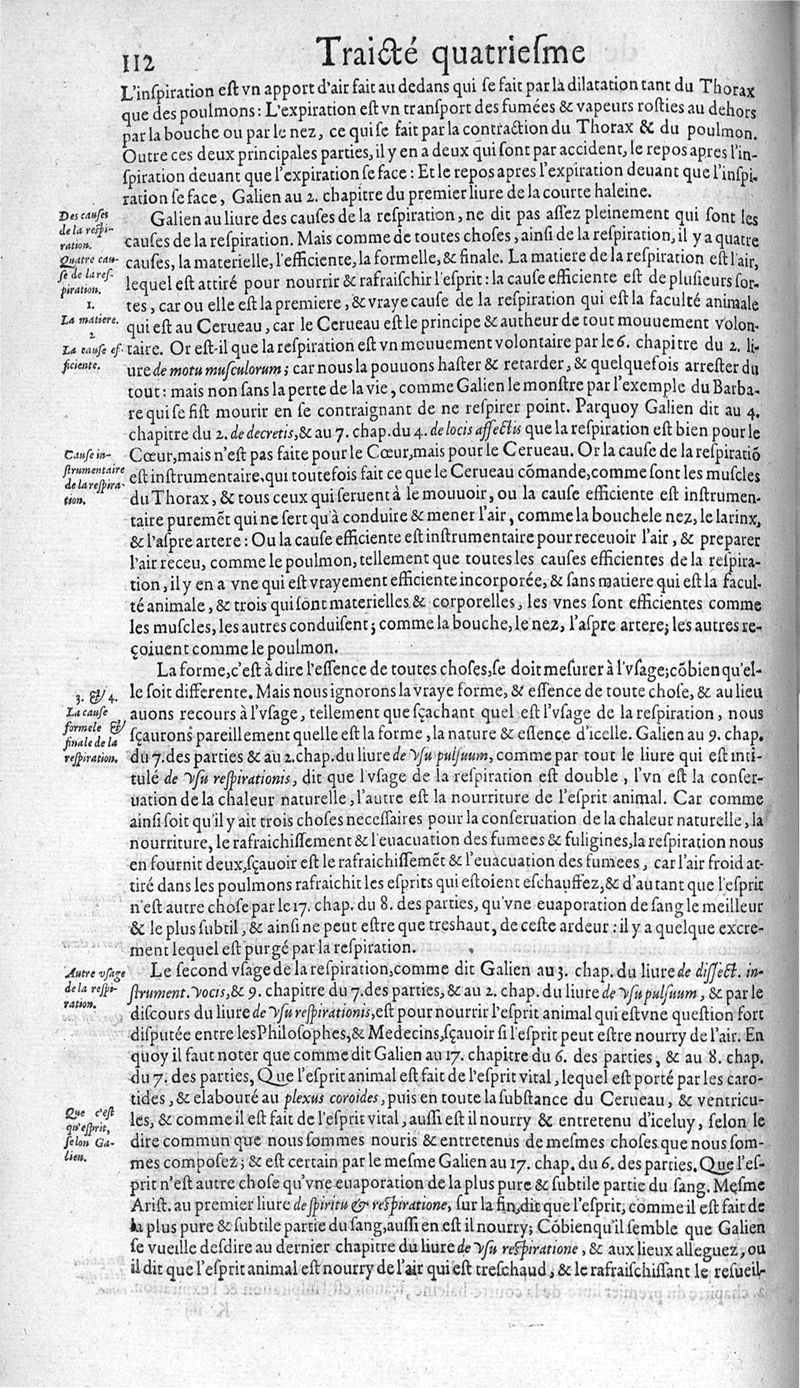 112 Traicté quatriesme
L'inſpiration eſt vn apport d'air fait au dedans qui ſe fait par la dilatation tant du Thorax
que des poulmons : L'expiration eſt vn tranſport des fumées & vapeurs roſties au dehors
par la bouche ou par le nez, ce qui ſe fait par la contraction du Thorax & du poulmon.
Outre ces deux principales parties, il y en a deux qui ſont par accident, le repos apres l'in-
ſpiration deuant que l'expiration ſe face : Et le repos apres l'expiration deuant que l'inſpi-
ration ſe face, Galien au 2. chapitre du premier liure de la courte haleine.
Des cauſes
de la reſpi-
ration.
Galien au liure des cauſes de la reſpiration, ne dit pas aſſez pleinement qui ſont les
cauſes de la reſpiration. Mais comme de toutes choſes, ainſi de la reſpiration, il y a quatre
Quatre cau-
ſe de la reſ-
piration.
cauſes, la materielle, l'efficiente, la formelle, & finale. La matiere de la reſpiration eſt l'air,
lequel eſt attiré pour nourrir & rafraiſchir l'eſprit : la cauſe efficiente eſt de pluſieurs ſor-
1.
La matiere.
tes, car ou elle eſt la premiere, & vraye cauſe de la reſpiration qui eſt la faculté animale
qui eſt au Cerueau, car le Cerueau eſt le principe & autheur de tout mouuement volon-
2
La cauſe ef-
ficiente.
taire. Or eſt-il que la reſpiration eſt vn mouuement volontaire par le 6. chapitre du 2. li-
ure de motu muſculorum ; car nous la pouuons haſter & retarder, & quelquefois arreſter du
tout : mais non ſans la perte de la vie, comme Galien le monſtre par l'exemple du Barba-
re qui ſe fiſt mourir en ſe contraignant de ne reſpirer point. Parquoy Galien dit au 4.
chapitre du 2. de decretis, & au 7. chap. du 4. de locis affectis que la reſpiration eſt bien pour le
Cauſe in-
ſtrumentaire
de la reſpira-
tion.
Cœur, mais n'eſt pas faite pour le Cœur, mais pour le Cerueau. Or la cauſe de la reſpiratiō
eſt inſtrumentaire, qui toutefois fait ce que le Cerueau cōmande, comme ſont les muſcles
du Thorax, & tous ceux qui ſeruent à le mouuoir, ou la cauſe efficiente eſt inſtrumen-
taire puremẽt qui ne ſert qu'à conduire & mener l'air, comme la bouche le nez, le larinx,
& l'aſpre artere : Ou la cauſe efficiente eſt inſtrumentaire pour receuoir l'air, & preparer
l'air receu, comme le poulmon, tellement que toutes les cauſes efficientes de la reſpira-
tion, il y en a vne qui eſt vrayement efficiente incorporée, & ſans matiere qui eſt la facul-
té animale, & trois qui ſont materielles & corporelles, les vnes ſont efficientes comme
les muſcles, les autres conduiſent ; comme la bouche, le nez, l'aſpre artere ; les autres re-
çoiuent comme le poulmon.
La forme, c'eſt à dire l'eſſence de toutes choſes, ſe doit meſurer à l'vſage ; cōbien qu'el-
3. & 4.
La cauſe
formele &
finale de la
reſpiration.
le ſoit differente. Mais nous ignorons la vraye forme, & eſſence de toute choſe, & au lieu
auons recours à l'vſage, tellement que ſçachant quel eſt l'vſage de la reſpiration, nous
ſçaurons pareillement quelle eſt la forme, la nature & eſſence d'icelle. Galien au 9. chap.
du 7. des parties & au 2. chap. du liure de vſu pulſuum, comme par tout le liure qui eſt inti-
tulé de vſu reſpirationis, dit que l'vſage de la reſpiration eſt double, l'vn eſt la conſer-
uation de la chaleur naturelle, l'autre eſt la nourriture de l'eſprit animal. Car comme
ainſi ſoit qu'il y ait trois choſes neceſſaires pour la conſeruation de la chaleur naturelle, la
nourriture, le rafraichiſſement & l'euacuation des fumees & fuligines, la reſpiration nous
en fournit deux, ſçauoir eſt le rafraichiſſemẽt & l'euacuation des fumees, car l'air froid at-
tiré dans les poulmons rafraichit les eſprits qui eſtoient eſchauffez, & d'autant que l'eſprit
n'eſt autre choſe par le 17. chap. du 8. des parties, qu'vne euaporation de ſang le meilleur
& le plus ſubtil, & ainſi ne peut eſtre que treshaut, de ceſte ardeur : il y a quelque excre-
ment lequel eſt purgé par la reſpiration.
Autre vſage
de la reſpi-
ration.
Le ſecond vſage de la reſpiration, comme dit Galien au 3. chap. du liure de diſſect. in-
ſtrument. vocis, & 9. chapitre du 7. des parties, & au 2. chap. du liure de vſu pulſuum, & par le
diſcours du liure de vſu reſpirationis, eſt pour nourrir l'eſprit animal qui eſt vne queſtion fort
diſputée entre les Philoſophes, & Medecins, ſçauoir ſi l'eſprit peut eſtre nourry de l'air. En
quoy il faut noter que comme dit Galien au 17. chapitre du 6. des parties, & au 8. chap.
du 7. des parties, Que l'eſprit animal eſt fait de l'eſprit vital, lequel eſt porté par les caro-
tides, & elabouré au plexus coroides, puis en toute la ſubſtance du Cerueau, & ventricu-
Que c'eſt
qu'eſprit,
ſelon Ga-
lien.
les, & comme il eſt fait de l'eſprit vital, auſſi eſt il nourry & entretenu d'iceluy, ſelon le
dire commun que nous ſommes nouris & entretenus de meſmes choſes que nous ſom-
mes compoſez ; & eſt certain par le meſme Galien au 17. chap. du 6. des parties. Que l'eſ-
prit n'eſt autre choſe qu'vne euaporation de la plus pure & ſubtile partie du ſang. Meſme
Ariſt. au premier liure de ſpiritu & reſpiratione, ſur la fin, dit que l'eſprit, comme il eſt fait de
la plus pure & ſubtile partie du ſang, auſſi en eſt il nourry ; Cōbien qu'il ſemble que Galien
ſe vueille deſdire au dernier chapitre du liure de vſu reſpiratione, & aux lieux alleguez, ou
il dit que l'eſprit animal eſt nourry de l'air qui eſt treſchaud, & le rafraiſchiſſant le reſueil-